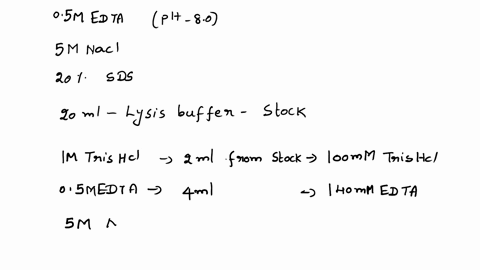 0.5M EDTA (pH-8.0)
5M Nacl
20% SDS
20 ml - Lysis buffer - Stock
1M Tris Hcl → 2ml from Stock → 100mM Tris Hcl
0.5M EDTA → 4ml → 140mM EDTA
5M